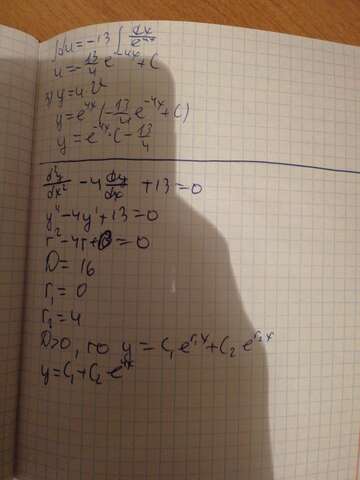 ∫du = -13 ∫ dx/e^4x
u = -13/4 e^-4x + C
3) y = u·v
y = e^4x (-13/4 e^-4x + C)
y = e^-4x · C - 13/4
d²y/dx² - 4 dy/dx + 13 = 0
y" - 4y' + 13 = 0
r² - 4r + 0 = 0
D = 16
r₁ = 0
r₂ = 4
D>0, то y = C₁ e^r₁x + C₂ e^r₂x
y = C₁ + C₂ e^4x